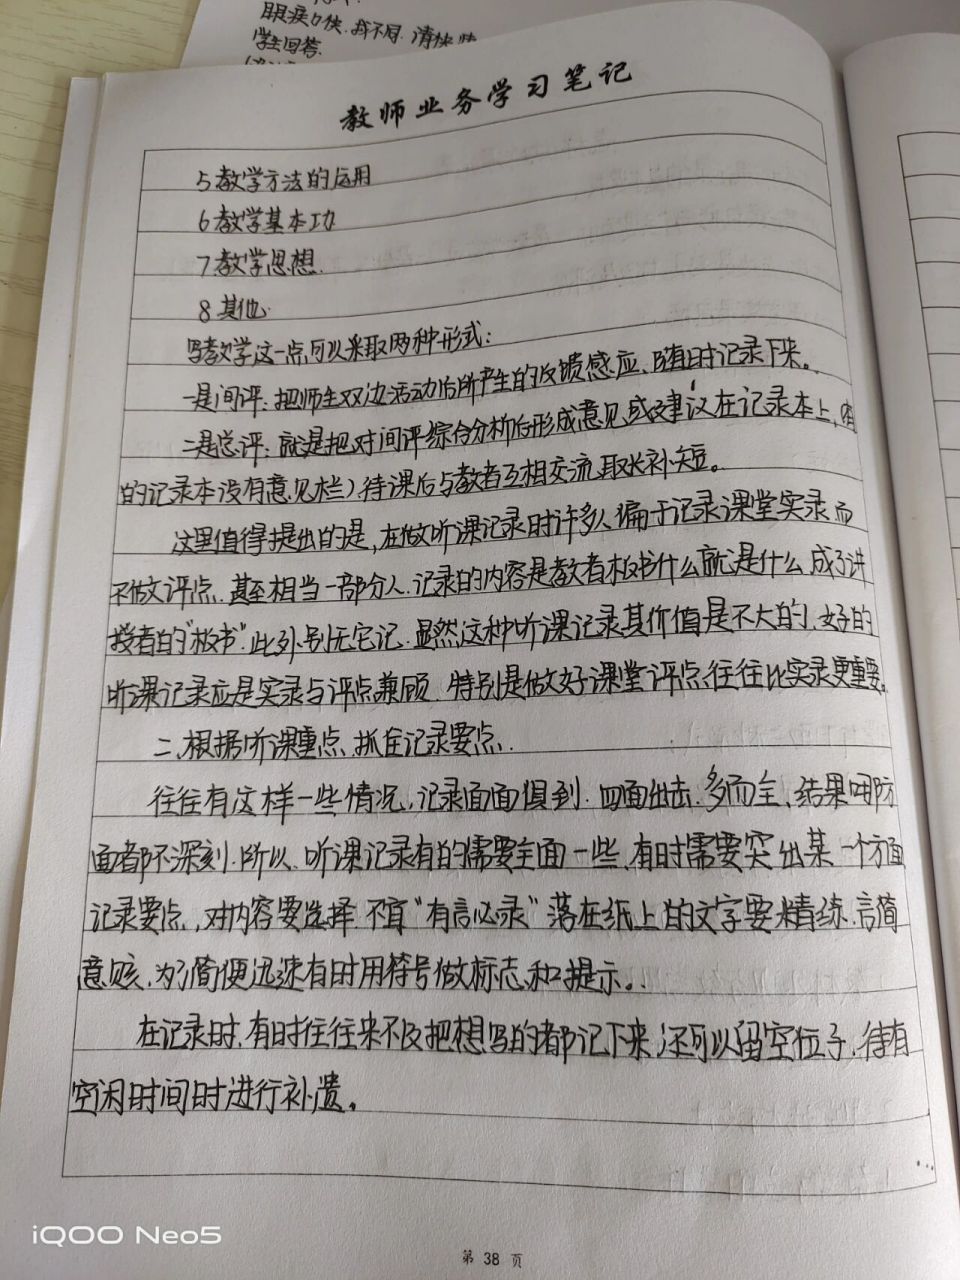 学生回答
教师业务学习笔记
5教学方法的运用
6教学基本功
7教学思想.
8其他.
写教学这一点,可以采取两种形式:
一是间评:把师生双边活动后所产生的反馈感应、随时记录下来。
二是总评:就是把对间评综合分析后形成意见或建议在记录本上,(有
的记录本没有意见栏)待课后与教者互相交流、取长补短。
这里值得提出的是,在做听课记录时许多人偏于记录课堂实录而
不做评点.甚至相当一部分人.记录的内容是教者板书什么就是什么,成了讲
授者的"板书".此外,别无它记.显然,这种听课记录其价值是不大的,好的
听课记录应是实录与评点兼顾.特别是做好课堂评点,往往比实录更重要.
二、根据听课重点、抓住记录要点.
往往有这样一些情况,记录面面俱到.四面出击.多而全、结果哪方
面都不深刻.所以、听课记录有的需要全面一些,有时需要突出某一个方面
记录要点,对内容要选择.不宜"有言必录"落在纸上的文字要精练.言简
意赅.为了简便迅速有时用符号做标志和提示。
在记录时,有时往往来不及把想写的都记下来,还可以留空位子,待有
空闲时间时进行补遗。
iQOO Neo5
第 38 页